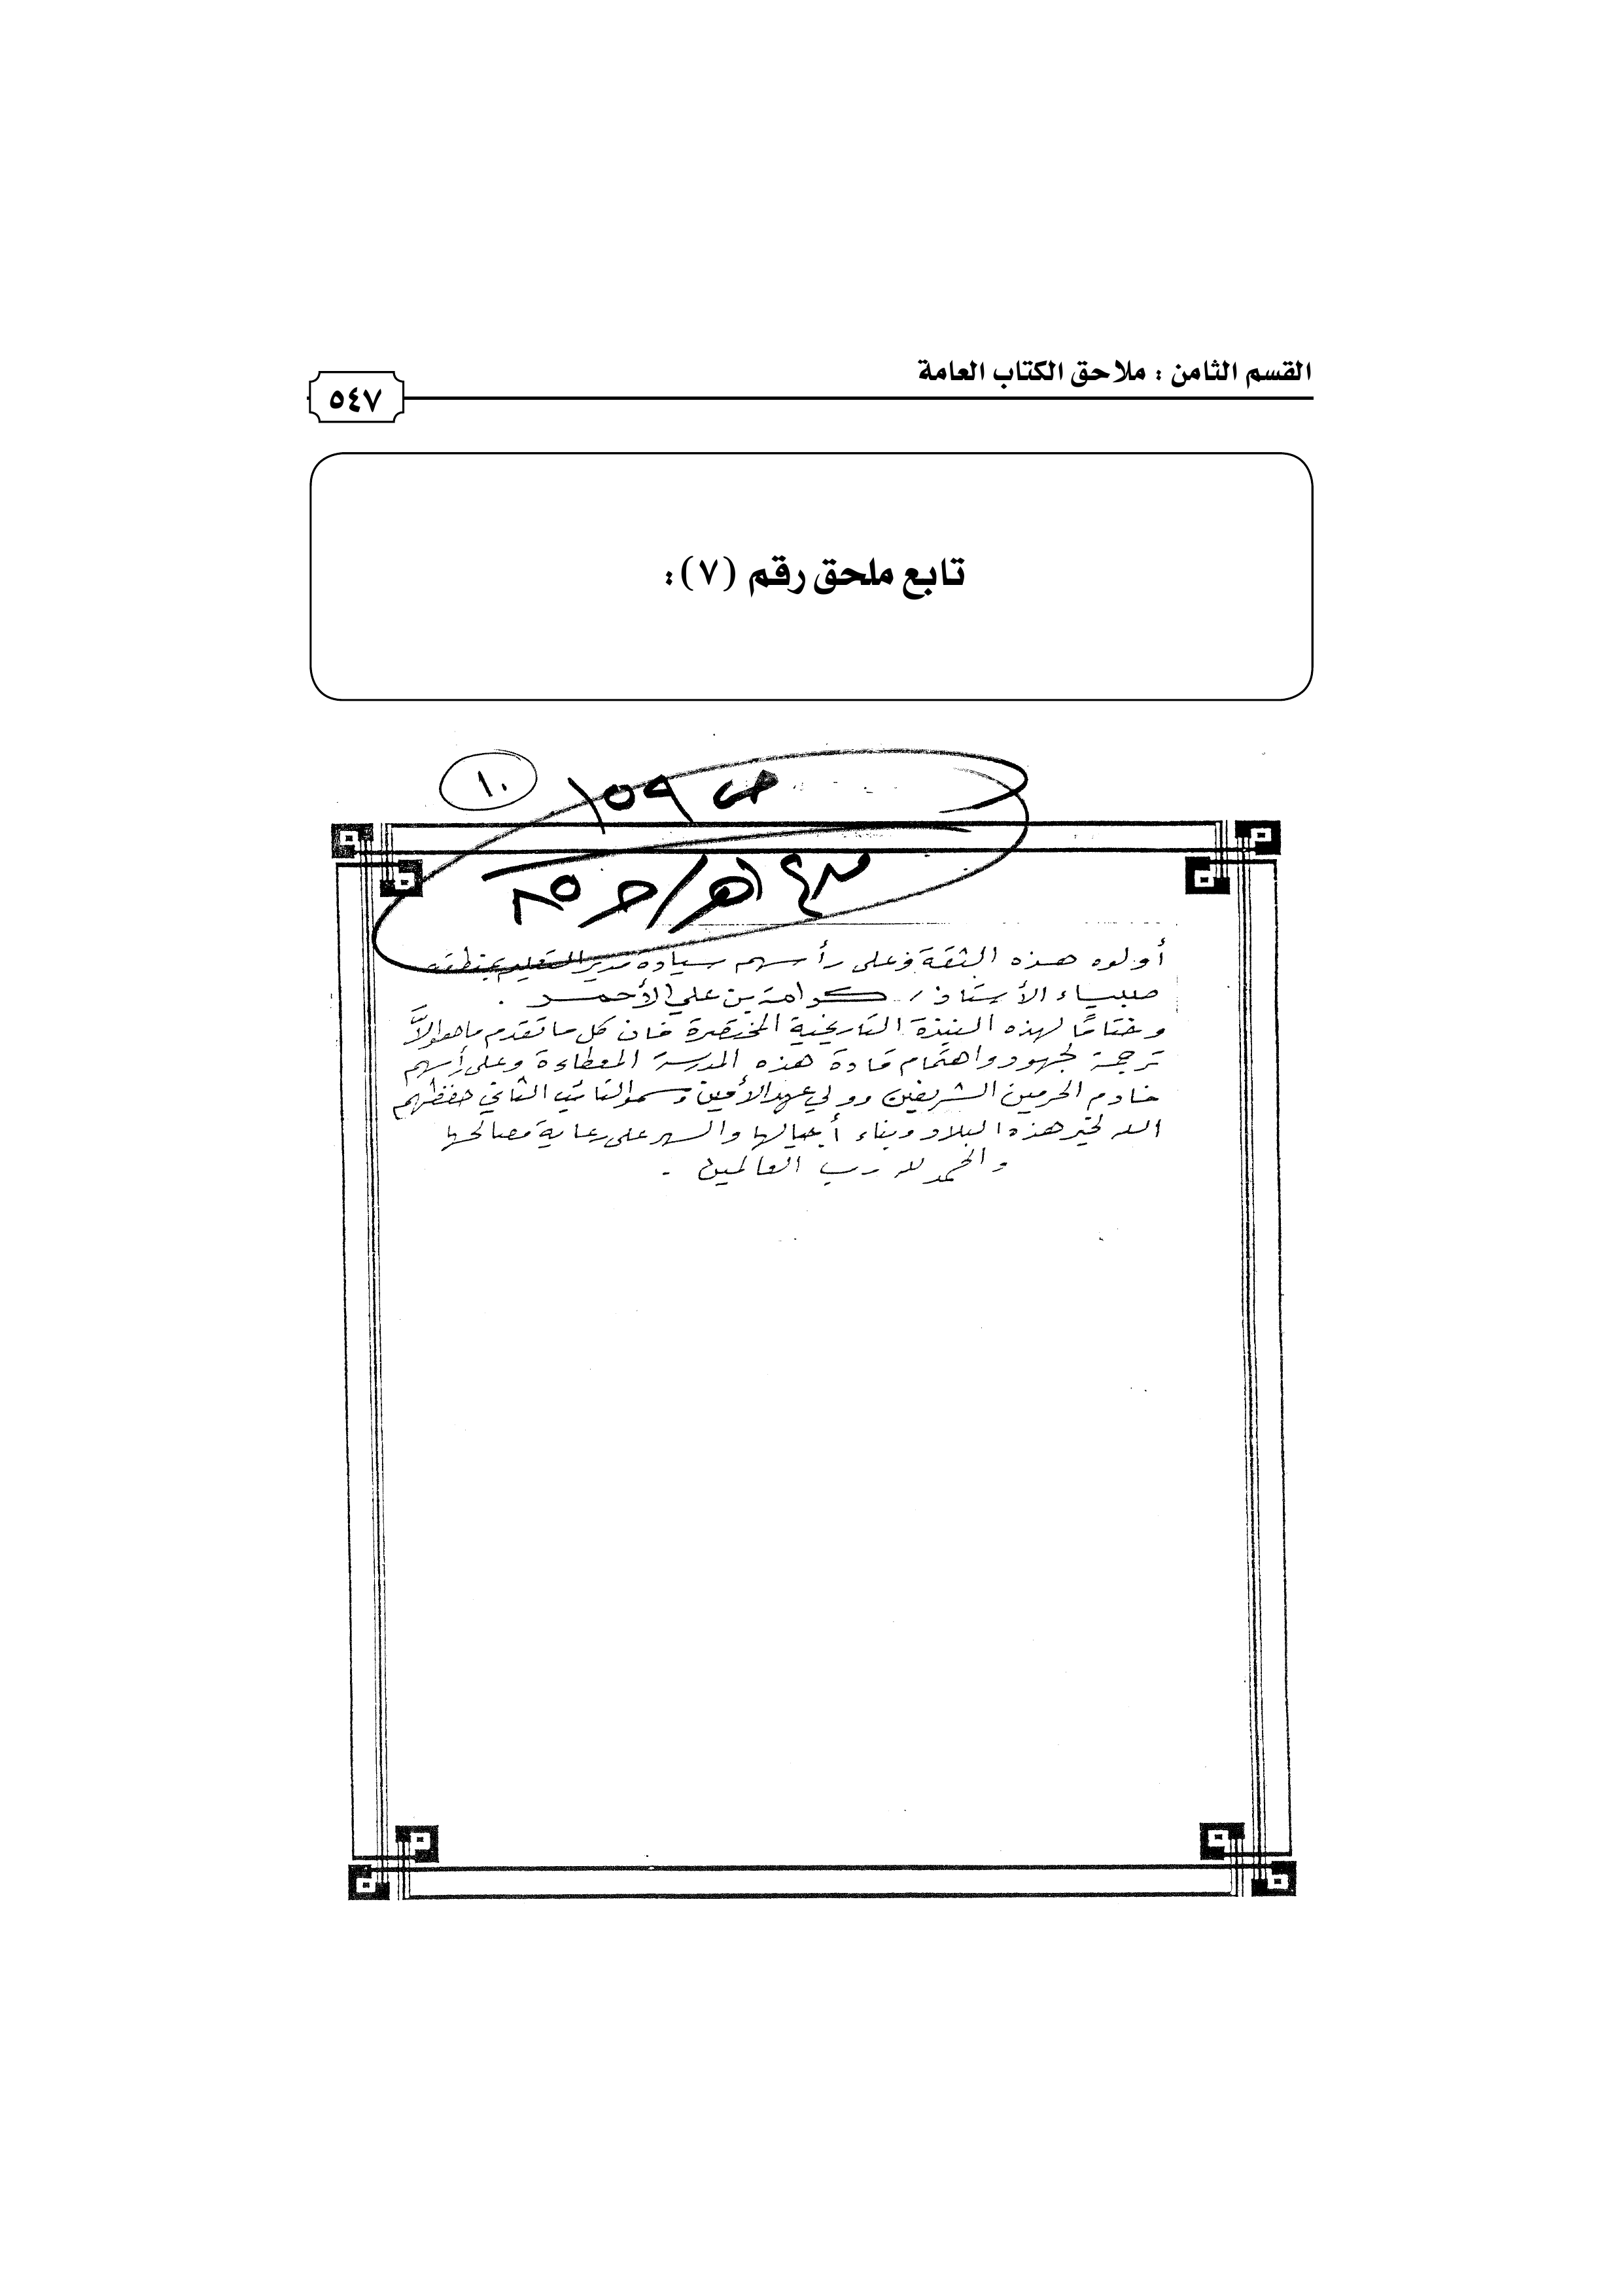 القسم الثامن : ملاحق الكتاب العامة
٥٤٧
تابع ملحق رقم (٧):
١٠
ص ١٥٩
أولوه هذه الثقة وعلى رأسهم سيادة مدير التعليم بمنطقة
صبياء الأستاذ / كرامة بن علي الأحمر .
وختامًا لهذه النبذة التاريخية المختصرة فان كل ما تقدم ما هو الاَّ
ترجمة لجهود واهتمام قادة هذه المدرسة المعطاءة وعلى رأسهم
خادم الحرمين الشريفين وولي عهده الأمين وسمو النائب الثاني حفظهم
الله لخير هذه البلاد وبناء أجيالها والسهر على رعاية مصالحها
والحمد لله رب العالمين .